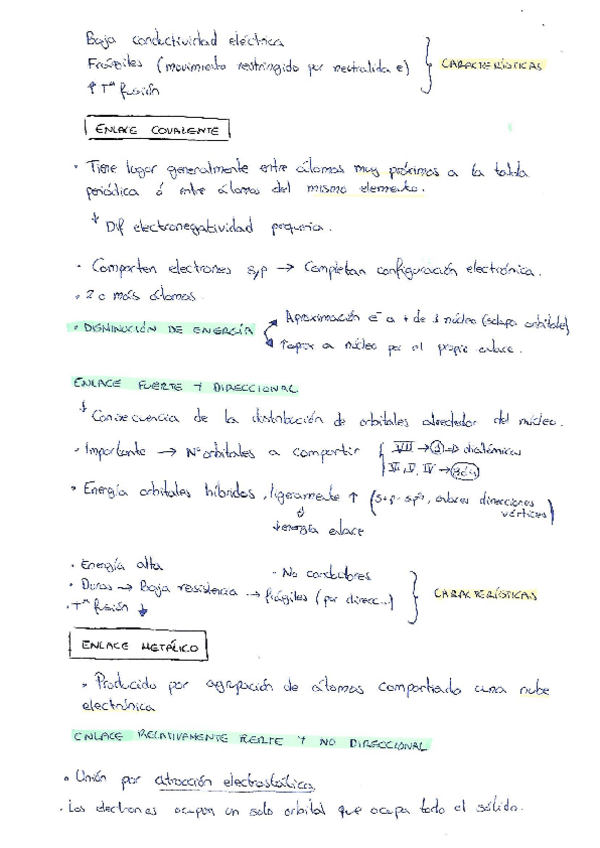 Baja conductividad eléctrica
Frágiles (movimiento restringido por neutralida e) CARACTERÍSTICAS
↑ Tª fusión
ENLACE COVALENTE
· Tiene lugar generalmente entre átomos muy próximos a la tabla
periódica ó entre átomos del mismo elemento.
↓ Dif electronegatividad pequeña.
· Comparten electrones s y p → Completan configuración electrónica.
· 2 o más átomos.
· DISMINUCIÓN DE ENERGÍA
Aproximación e⁻ a + de 1 núcleo (solapa orbitales)
↑aprox a núcleo por el propio enlace.
ENLACE FUERTE Y DIRECCIONAL
↓ Consecuencia de la distribución de orbitales alrededor del núcleo.
· Importante → Nº orbitales a compartir
VII → 1 → diatómicas
VI, V, IV →
· Energía orbitales híbridos, ligeramente ↑ (s+p - sp³, enlaces direcciones vértices)
↓energía enlace
· Energía alta - No conductores
· Duros → Baja resistencia → frágiles (por direcc...) CARACTERÍSTICAS
· Tª fusión ↓
ENLACE METÁLICO
· Producido por agrupación de átomos compartiado una nube
electrónica
ENLACE RELATIVAMENTE FUERTE Y NO DIRECCIONAL
· Unión por atracción electrostática.
· Los electrones ocupan un solo orbital que ocupa todo el sólido.